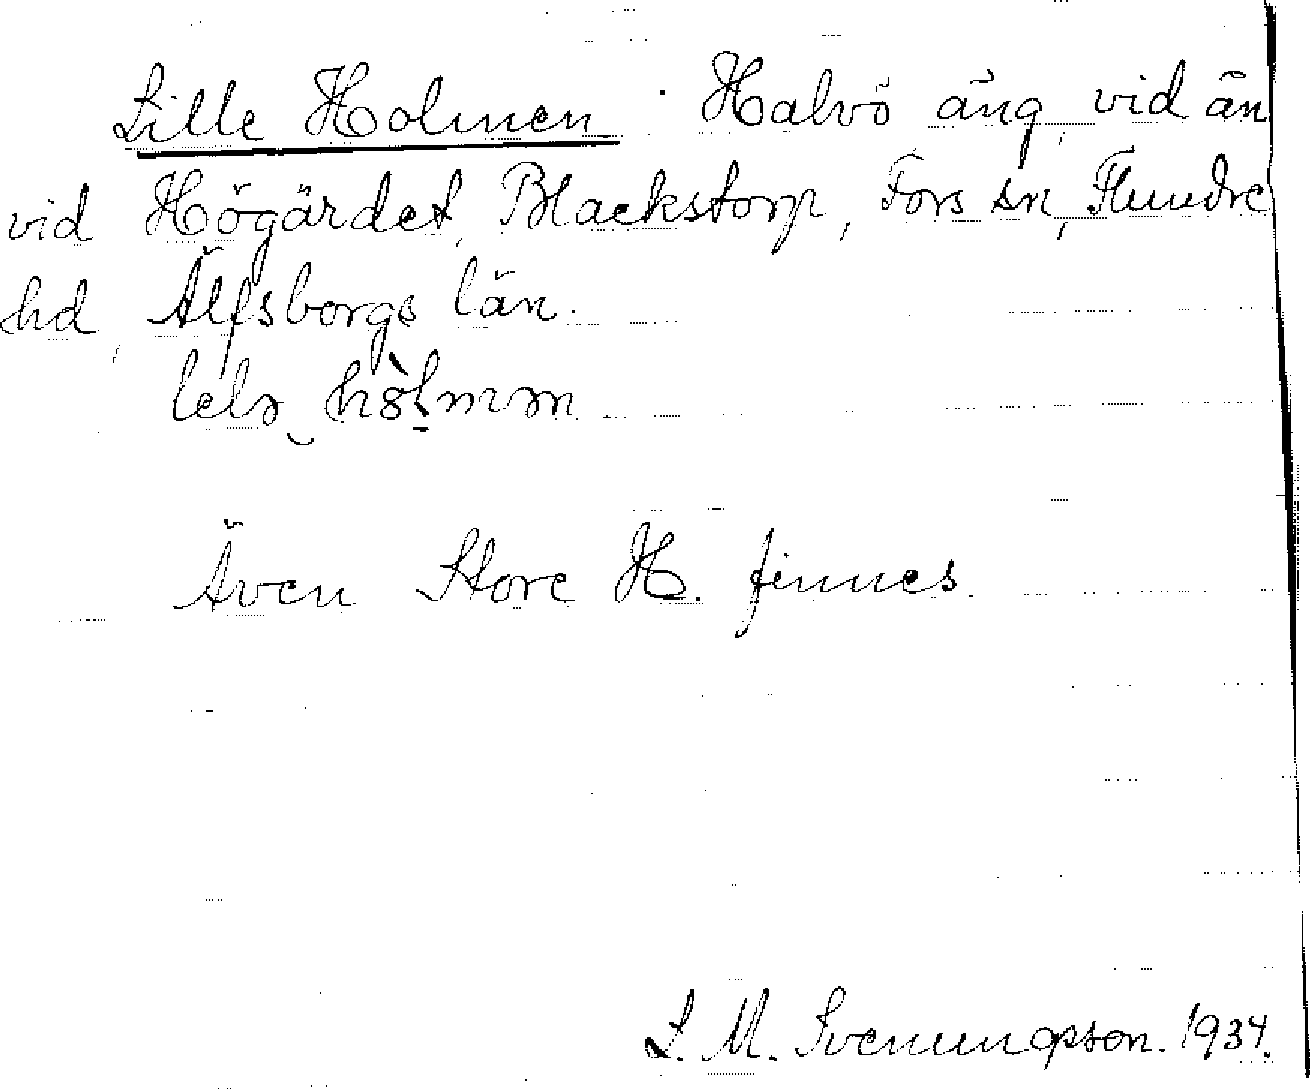 Lille Holmen. Halvö äng, vid ån
vid Högärdet, Blackstorp, Fors sn, Flundre
hd, Älfsborgs län.
Även Store H. finnes.
S. M. Svenungsson. 1934.